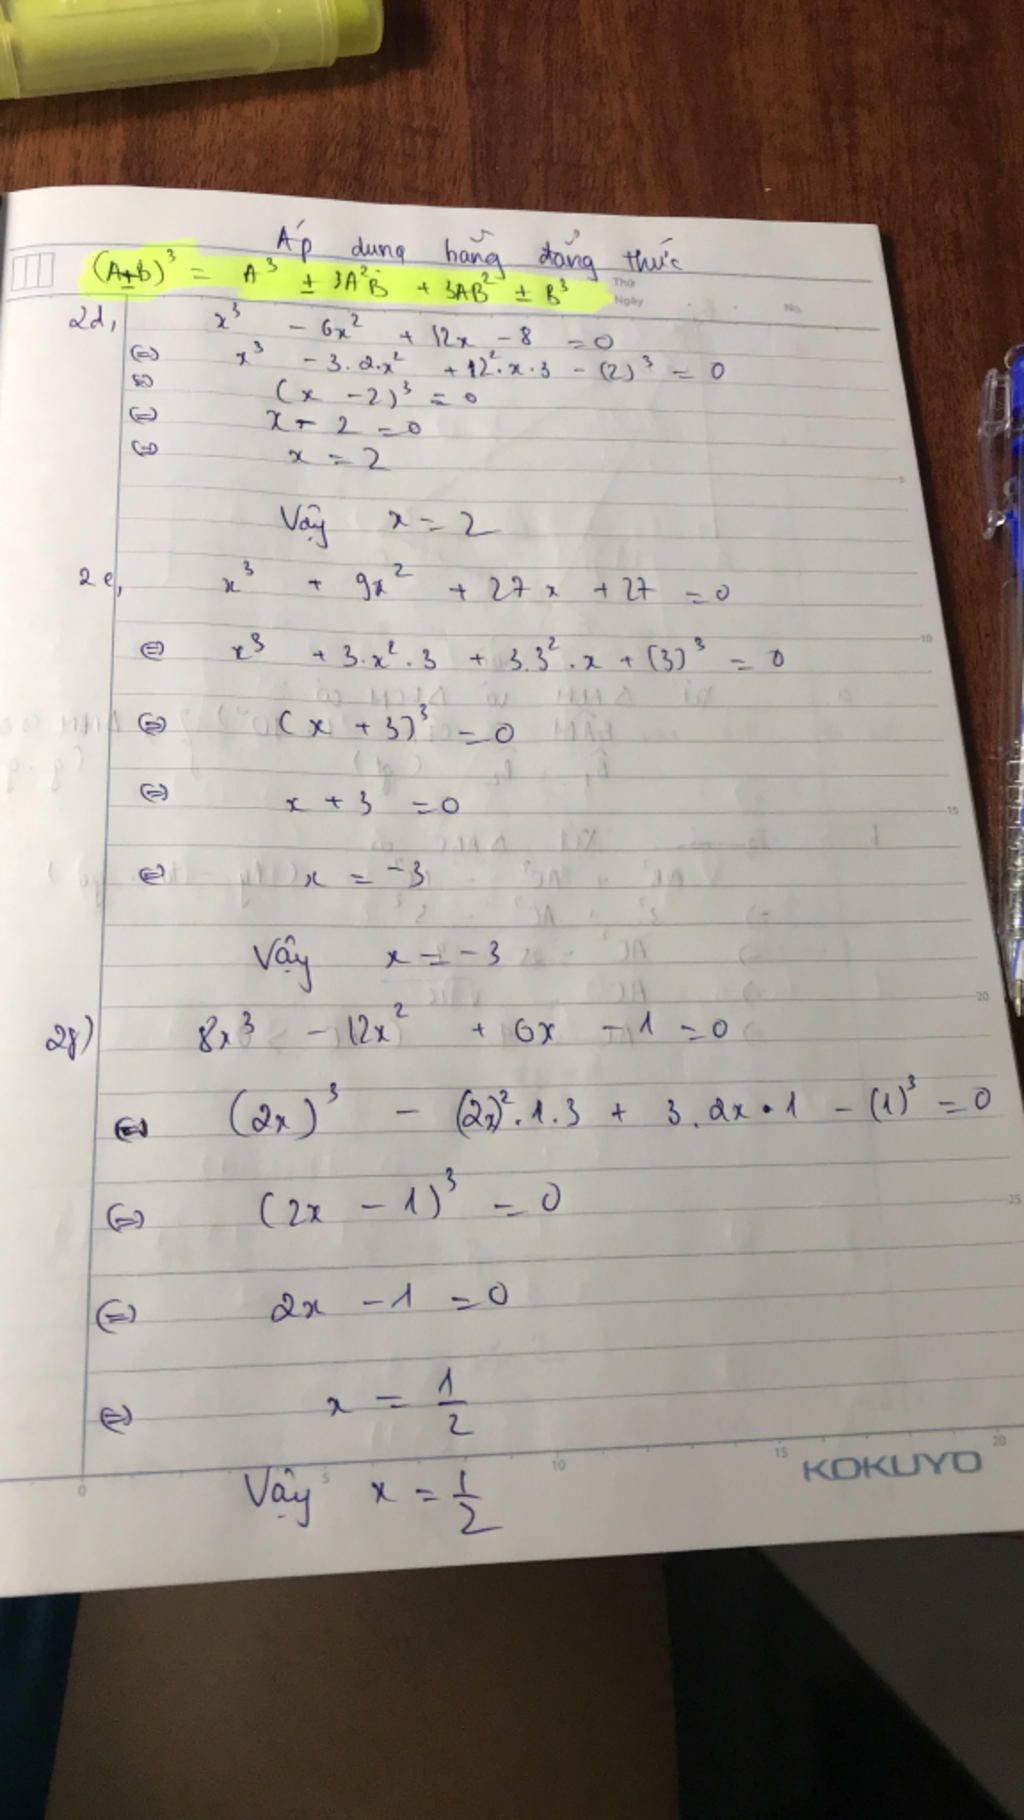 Áp dung hằng đẳng thức
(A±B)³ = A³ ± 3A²B + 3AB² ± B³
Thứ
Ngày
No.
2d, x³ - 6x² + 12x - 8 = 0
(=) x³ - 3.2.x² + 12².x.3 - (2)³ = 0
(=) (x - 2)³ = 0
(=) x - 2 = 0
(=) x = 2
Vậy x = 2
2e, x³ + 9x² + 27x + 27 = 0
(=) x³ + 3.x².3 + 3.3².x + (3)³ = 0
(=) (x + 3)³ = 0
(=) x + 3 = 0
(=) x = -3
Vậy x = -3
2g) 8x³ - 12x² + 6x - 1 = 0
(=) (2x)³ - (2x)².1.3 + 3.2x.1 - (1)³ = 0
(=) (2x - 1)³ = 0
(=) 2x - 1 = 0
(=) x = 1/2
Vậy x = 1/2
KOKUYO
0 5 10 15 20
5
10
15
20
25